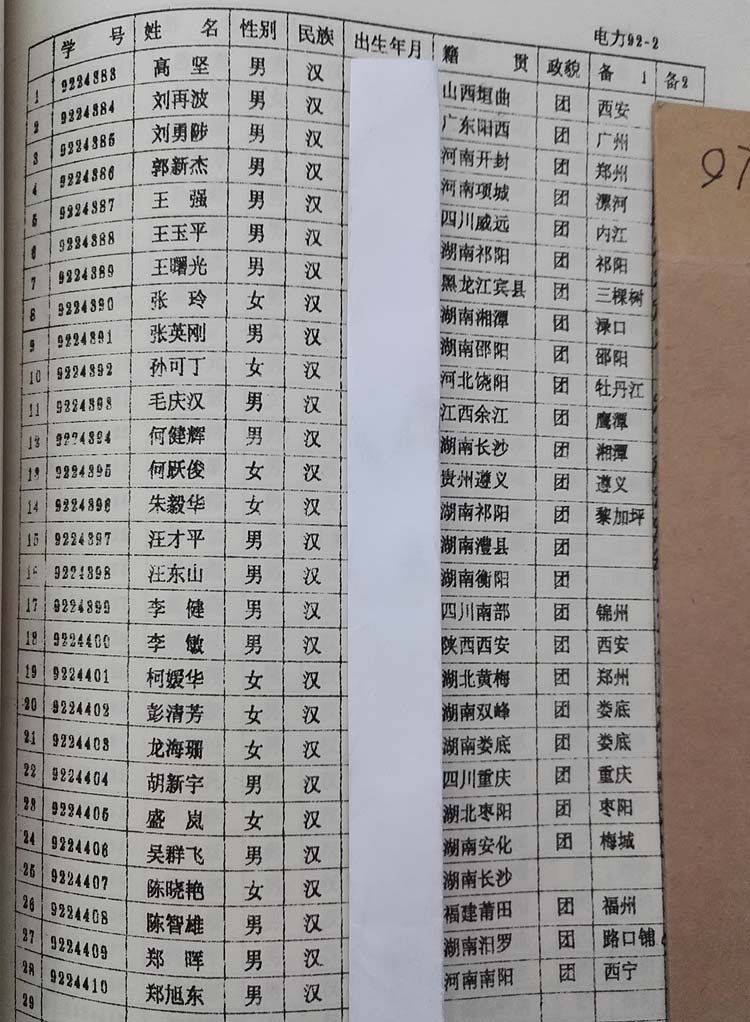 电力92-2
学号 姓名 性别 民族 出生年月 籍贯 政貌 备1 备2
1 9224383 高坚 男 汉 山西垣曲 团 西安
2 9224384 刘再波 男 汉 广东阳西 团 广州
3 9224385 刘勇陟 男 汉 河南开封 团 郑州
4 9224386 郭新杰 男 汉 河南项城 团 漯河
5 9224387 王强 男 汉 四川威远 团 内江
6 9224388 王玉平 男 汉 湖南祁阳 团 祁阳
7 9224389 王曙光 男 汉 黑龙江宾县 团 三棵树
8 9224390 张玲 女 汉 湖南湘潭 团 渌口
9 9224391 张英刚 男 汉 湖南邵阳 团 邵阳
10 9224392 孙可丁 女 汉 河北饶阳 团 牡丹江
11 9224393 毛庆汉 男 汉 江西余江 团 鹰潭
12 9224394 何健辉 男 汉 湖南长沙 团 湘潭
13 9224395 何跃俊 女 汉 贵州遵义 团 遵义
14 9224396 朱毅华 女 汉 湖南祁阳 团 黎加坪
15 9224397 汪才平 男 汉 湖南澧县 团
16 9224398 汪东山 男 汉 湖南衡阳 团
17 9224399 李健 男 汉 四川南部 团 锦州
18 9224400 李敏 男 汉 陕西西安 团 西安
19 9224401 柯媛华 女 汉 湖北黄梅 团 郑州
20 9224402 彭清芳 女 汉 湖南双峰 团 娄底
21 9224403 龙海珊 女 汉 湖南娄底 团 娄底
22 9224404 胡新宇 男 汉 四川重庆 团 重庆
23 9224405 盛岚 女 汉 湖北枣阳 团 枣阳
24 9224406 吴群飞 男 汉 湖南安化 团 梅城
25 9224407 陈晓艳 女 汉 湖南长沙
26 9224408 陈智雄 男 汉 福建莆田 团 福州
27 9224409 郑晖 男 汉 湖南汨罗 团 路口铺
28 9224410 郑旭东 男 汉 河南南阳 团 西宁
29
97